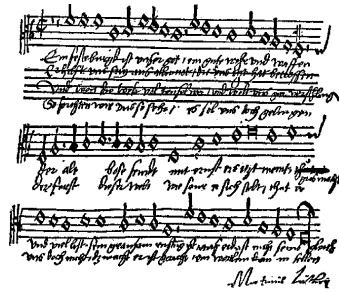 Ein feste burgk ist unser got / ein gute wehr und waffen
Er hilfft uns frey aus aller not / die uns itzt hat betroffen
Und wenn die welt vol teuffel wer und wolt uns gar verschlingen
So furchten wir uns so sehr / es sol uns doch gelingen
Der alt bose feindt mit ernst ers itzt meint
der furst dieser welt wie saur er sich stelt thut er
und viel list sein grausam rustung ist auff erd ist nicht seins gleich
uns doch nicht das macht er ist gericht ein wortlin kan in fellen
Martinus Luther